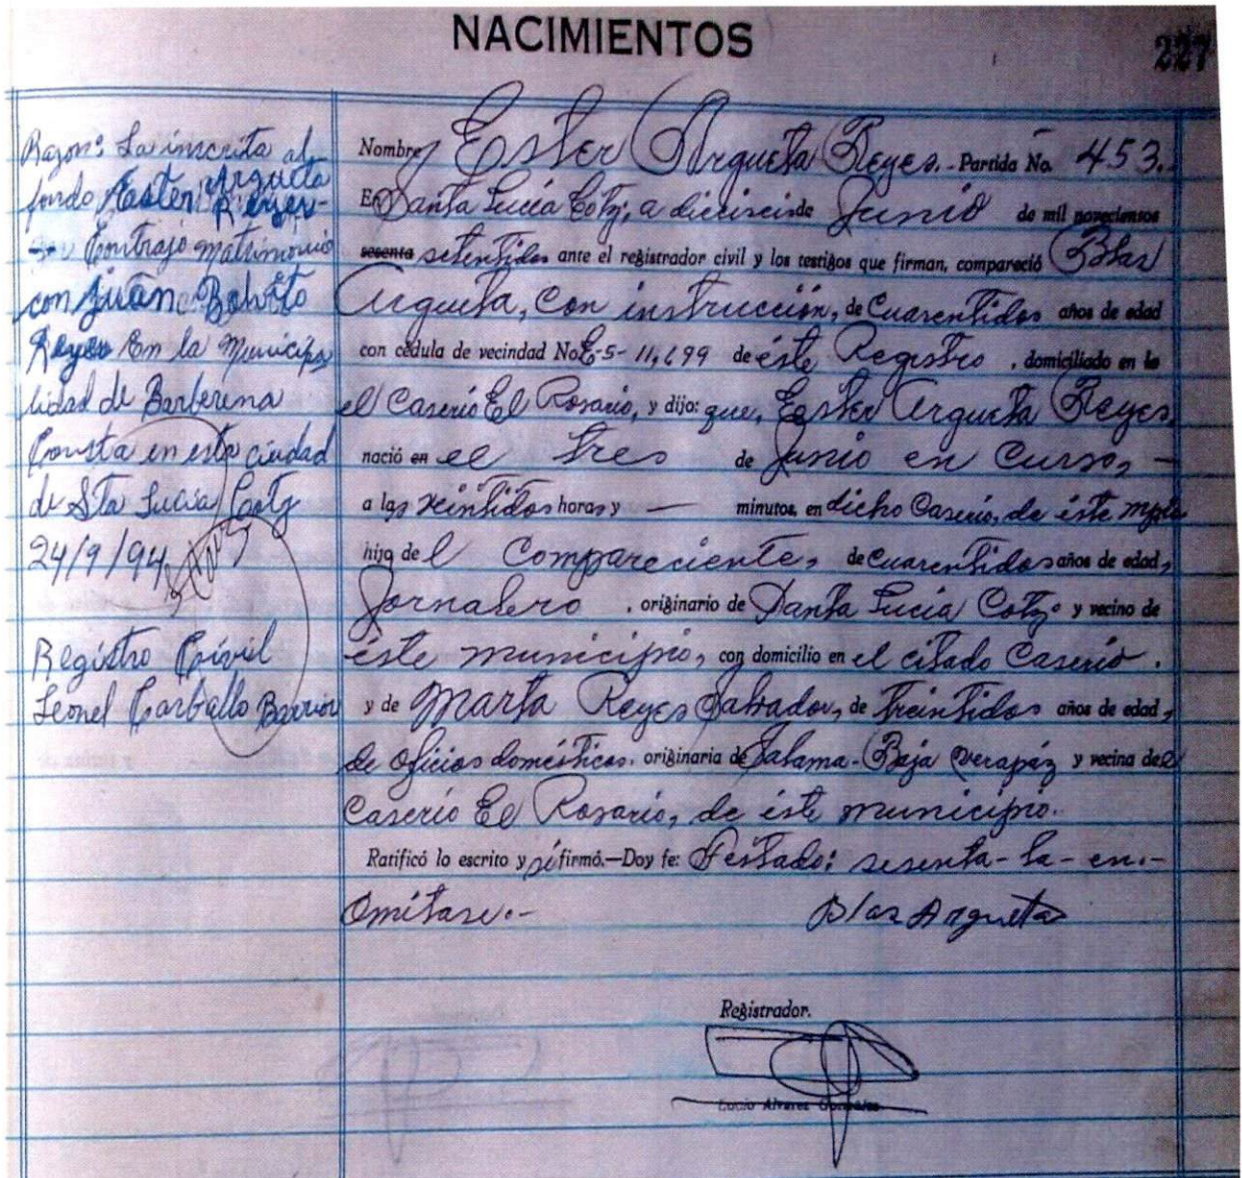 NACIMIENTOS
227
Razon: La inscrita al
fondo Easter Argueta
Reyes-
Contrajo matrimonio
con Juan
Reyes En la Municipa
lidad de Barberena
Consta en esta ciudad
de Sta Lucia Cotz
24/9/94
Registro Civil
Leonel Carballo Barrios
Nombre Ester Argueta Reyes.- Partida No. 453.-
En Santa Lucía Cotz; a dieciseis de Junio de mil novecientos
sesenta setentidos ante el registrador civil y los testigos que firman, compareció Blas
Argueta, con instrucción, de cuarentidos años de edad
con cédula de vecindad No. E-5-11,699 de éste Registro, domiciliado en la
el Caserío El Rosario, y dijo: que, Ester Argueta Reyes,
nació en el tres de Junio en curso, -
a las veintidos horas y — minutos, en dicho Caserío, de éste mpio
hija de l compareciente, de cuarentidos años de edad,
Jornalero, originario de Santa Lucía Cotz. y vecino de
éste municipio, con domicilio en el citado Caserío.
y de Marta Reyes Salvador, de treintidos años de edad,
de oficios domésticos, originaria de Salama-Baja Verapáz y vecina del
Caserío El Rosario, de éste municipio.
Ratificó lo escrito y sí firmó.—Doy fe: Testado: sesenta-la-en.-
Omítase.- Blas Argueta
Registrador.
Lucio Alvarez Gonzales